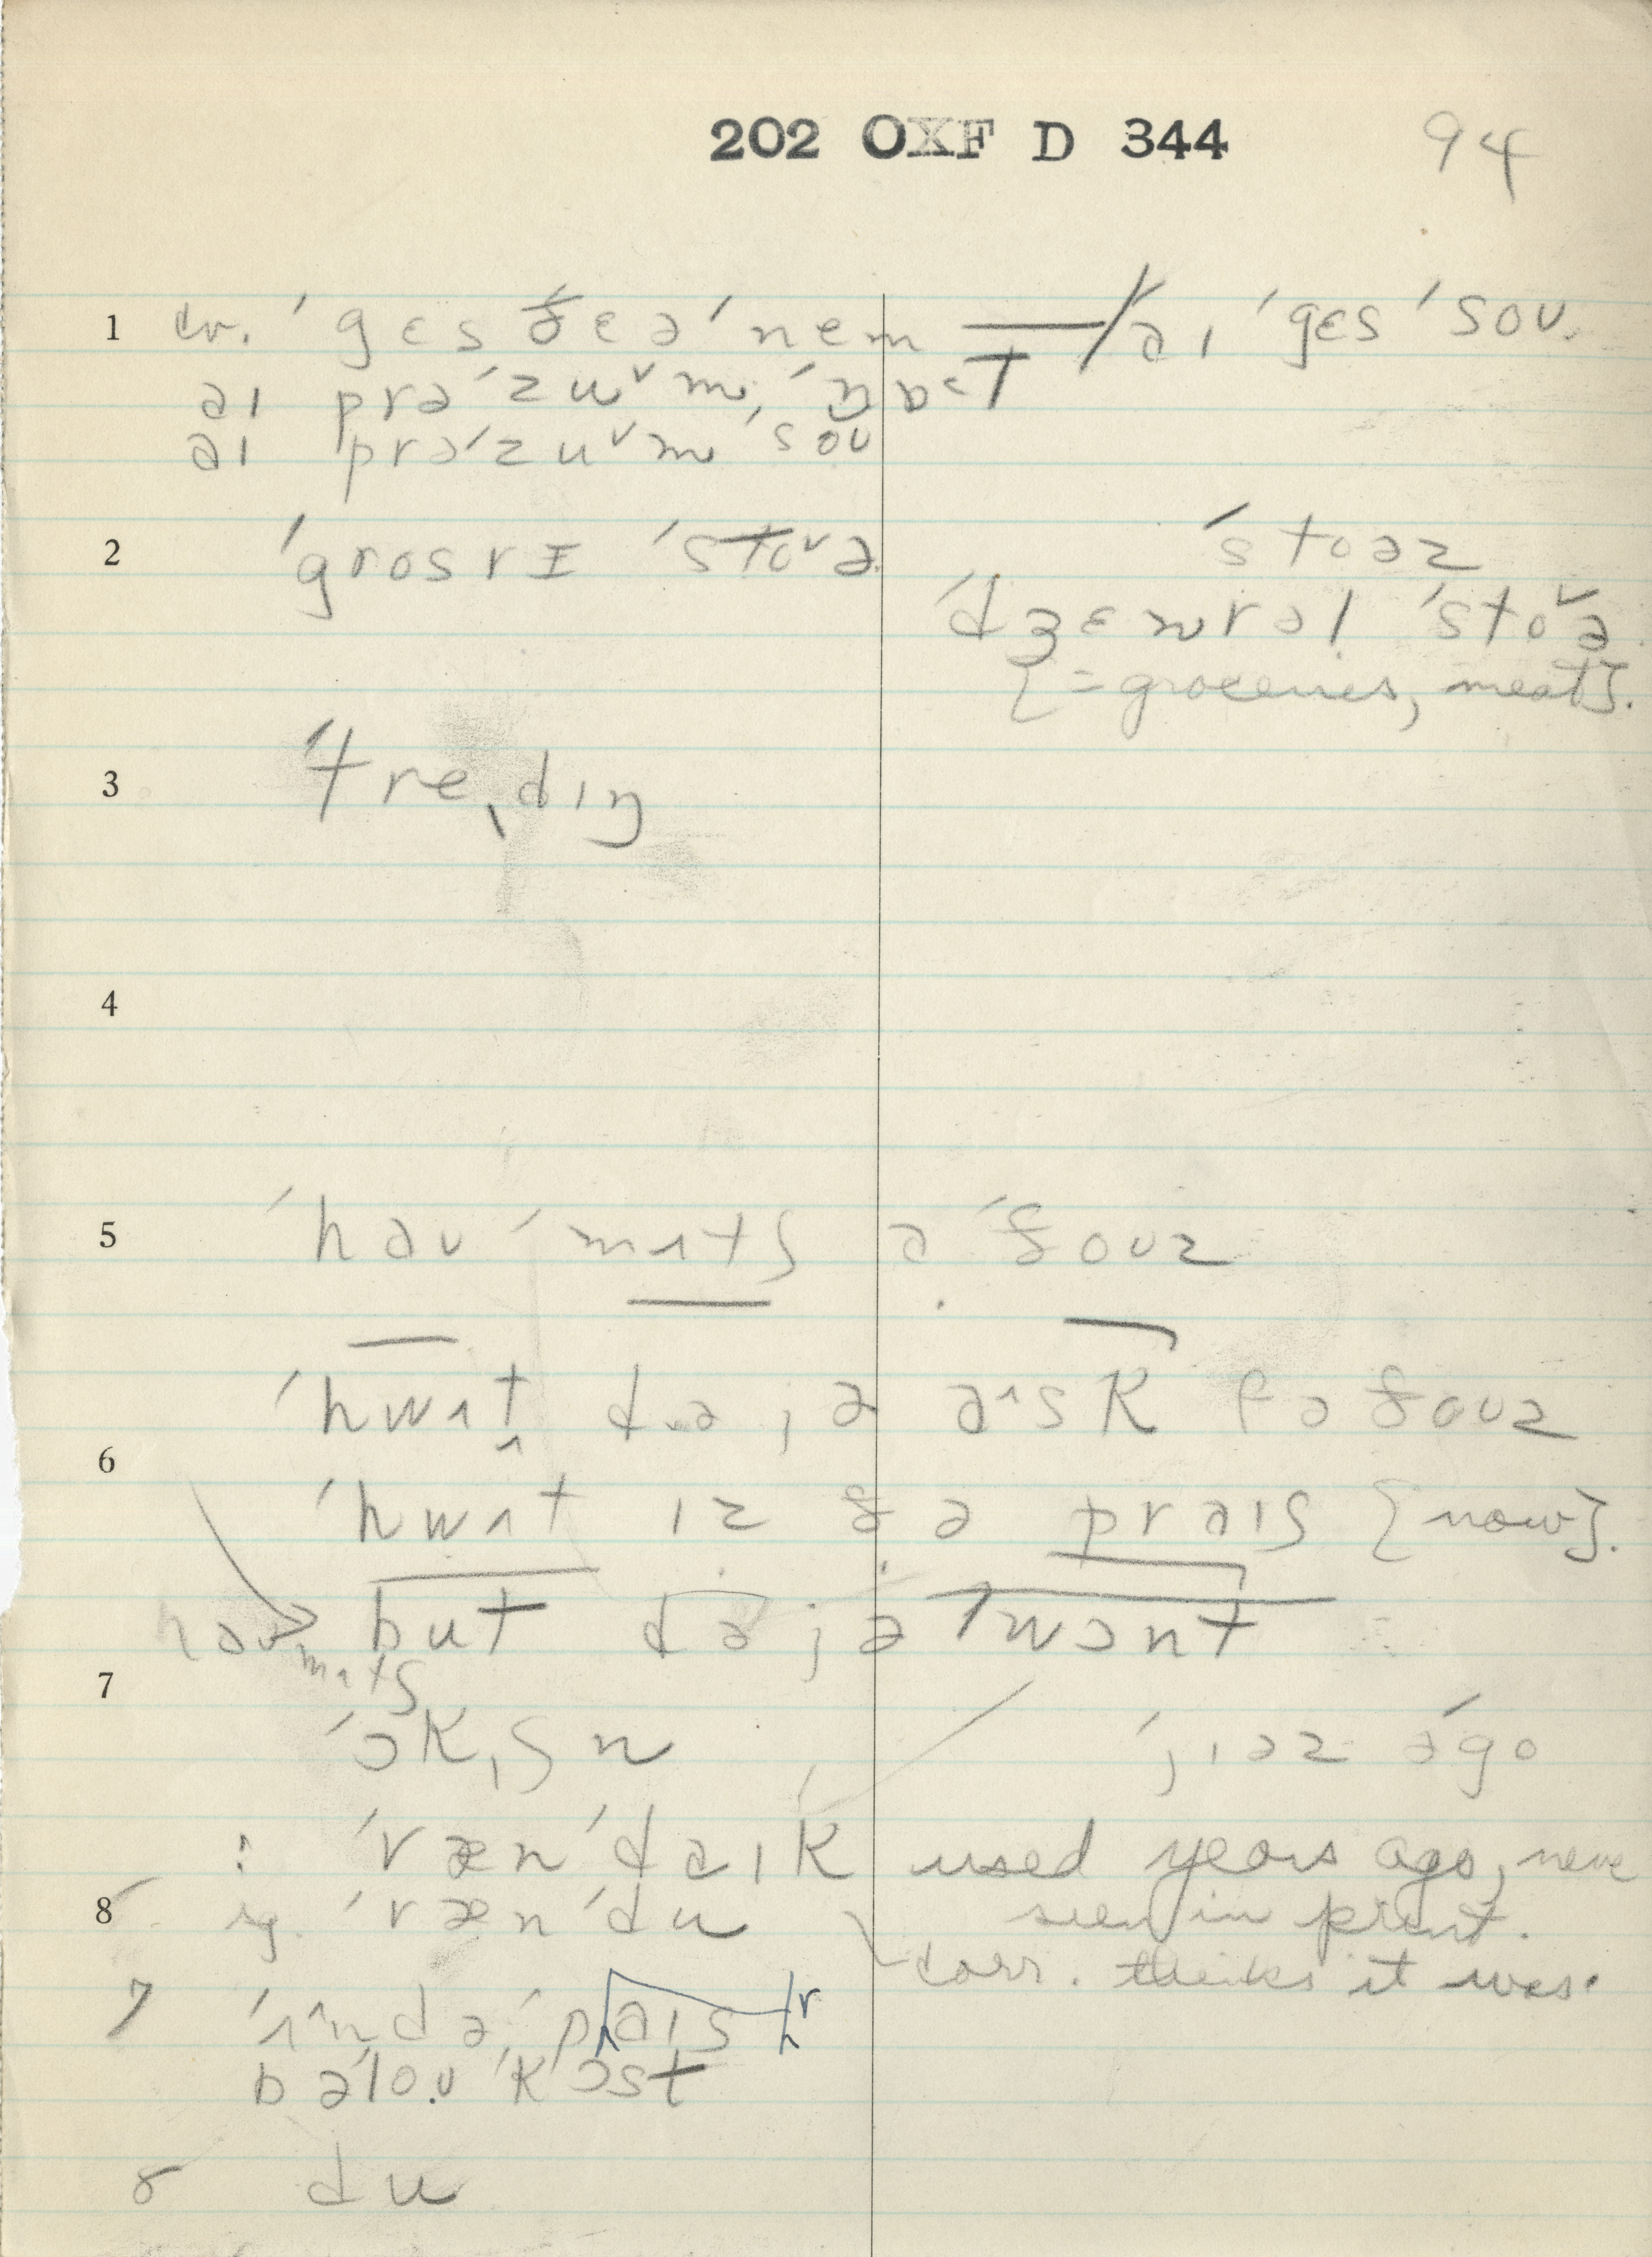 202 OXF D 344 94
1 cv. ˈgɛs ðɛə ˈnem / aɪ ˈgɛs ˈsoʊ.
aɪ prəˈzuˇm, ˈnɒt
aɪ prəˈzuˇm ˈsoʊ
2 ˈgrosrɪ ˈstoˇə ˈstoəz
ˈdʒɛnrəl ˈstoˇə
[= groceries, meat].
3 ˈtreˌdɪŋ
4
5 ˈhaʊ ˈmʌtʃ ə ˈðoʊz
ˈhwʌt də jə aˆsk fə ðoʊz
6
ˈhwʌt ɪz ðə praɪs [now].
haʊ mʌtʃ but də jə ˈwɔnt
7
ˈɔkʃn ˈjɪəz əˈgo
: ˈræn ˈdaɪk used years ago, never
8 sg. ˈræn ˈdu seen in print.
corr. thinks it was.
7 ˈʌˆndə ˈpraɪs
bəˈloʊ ˈkɔst
8 du